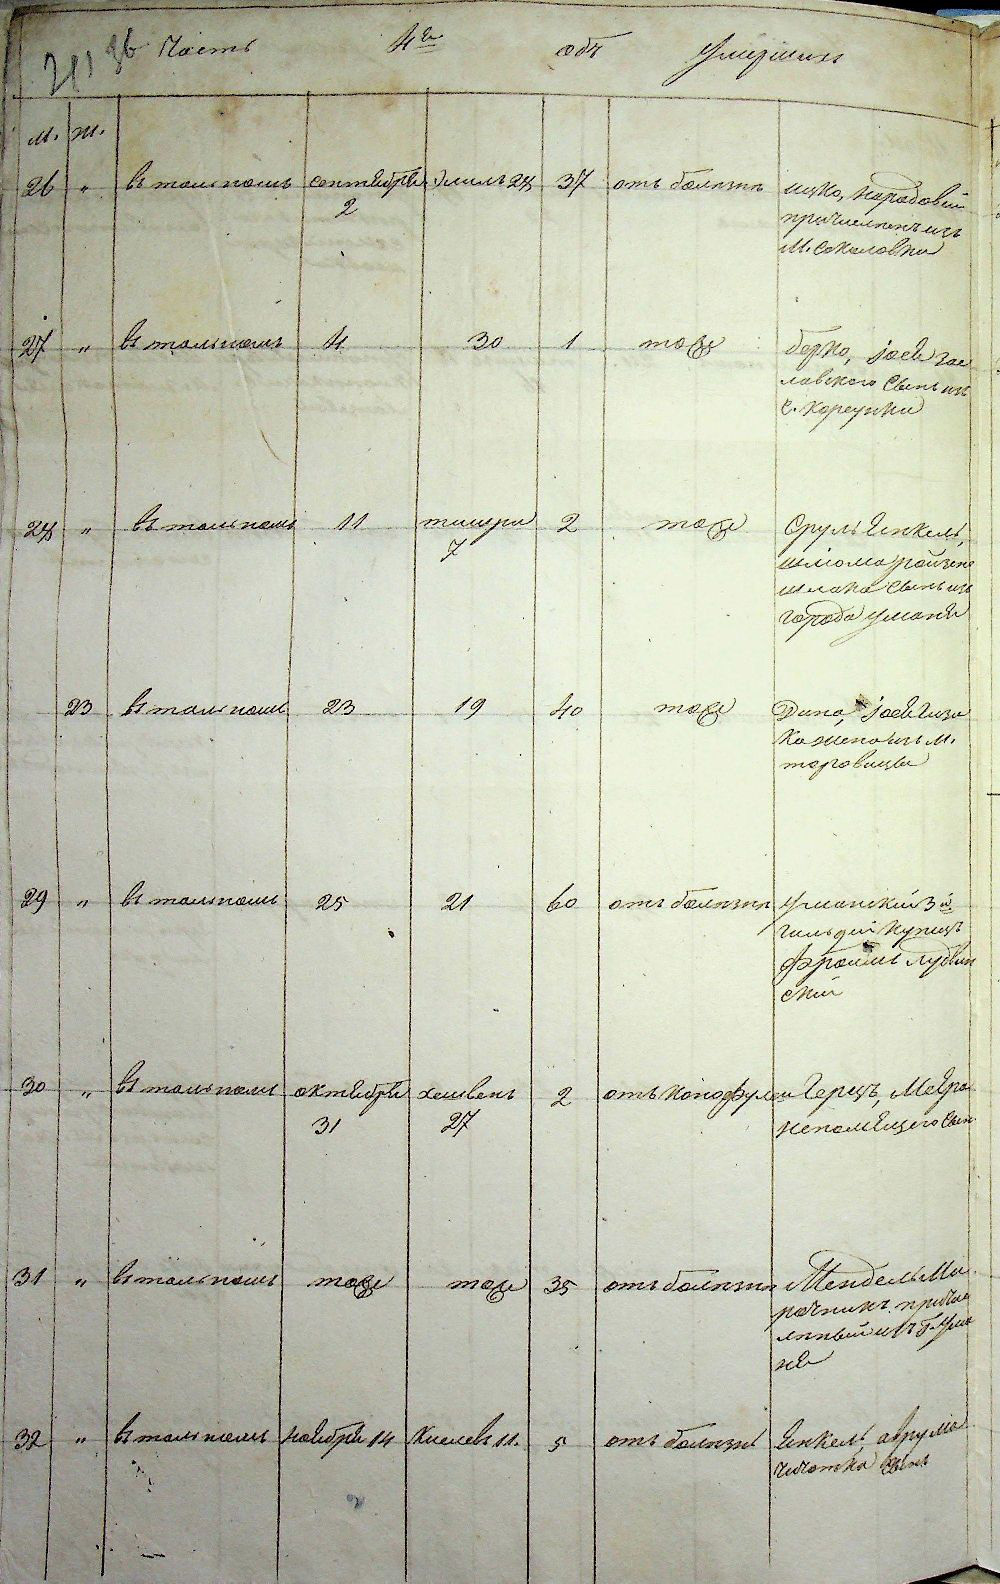 Часть 4я объ Умершихъ
м. ж.
26 " въ тальномъ сентября 2 Элиль 28 37 отъ болезни ицко, народовый
причисленъ изъ
м. соколовки
27 " въ тальномъ 4 30 1 тоже берко, иосъ зас
лавского сынъ изъ
с. кореунки
28 " въ тальномъ 11 тишри 7 2 тоже Сруль Янкель,
шлома райзен
шлака сынъ изъ
города уманя
23 въ тальномъ 23 19 40 тоже Дина,
жена изъ м.
торговицы
29 " въ тальномъ 25 21 60 отъ болезни Уманский 3й
гильдии купецъ
Фроимъ
ский
30 " въ тальномъ октября 31 хешвенъ 27 2 отъ Герецъ, Меера
непомящего сынъ
31 " въ тальномъ тоже тоже 35 отъ болезни Мендель Ма
рочникъ причис
ленный изъ г. Ума
ня
32 " въ тальномъ ноября 14 Кислевъ 11. 5 отъ болезни Янкель, аврума
чичотка сынъ